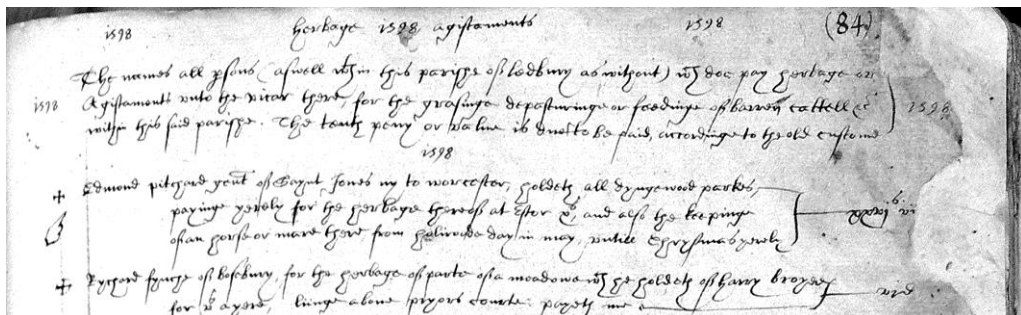 1598 Herbage 1598 agistaments 1598 (84)
The names all psons (aswell wch in this parishe of Ledbury as without) wch doe pay herbage or
1598 Agistaments vnto the vicar there, for the grasinge depasturinge or feedinge of barren cattell &c 1598
within this said parishe. The tenth peny or value is due to be paid, accordinge to the old custome
1598
Edmond pitchard gent of Saynt Jones ny to worcester, holdeth all dyngewood parkes,
payinge yerely for the herbage therof at Ester and also the keepinge
of an horse or mare there from holirode day in may, vntill Chrystmas yerely
Rychard fynche of bosbury, for the herbage of parte of a meadowe wch he holdeth of harry
for a yere, liinge above pryors courte: payeth me vid